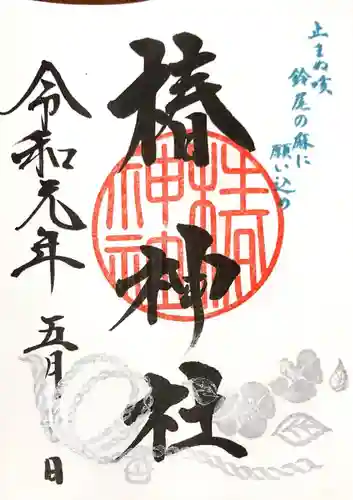 止まぬ咳
鈴尾の麻に
願い込め
椿神社
椿神社
令和元年
五月一日